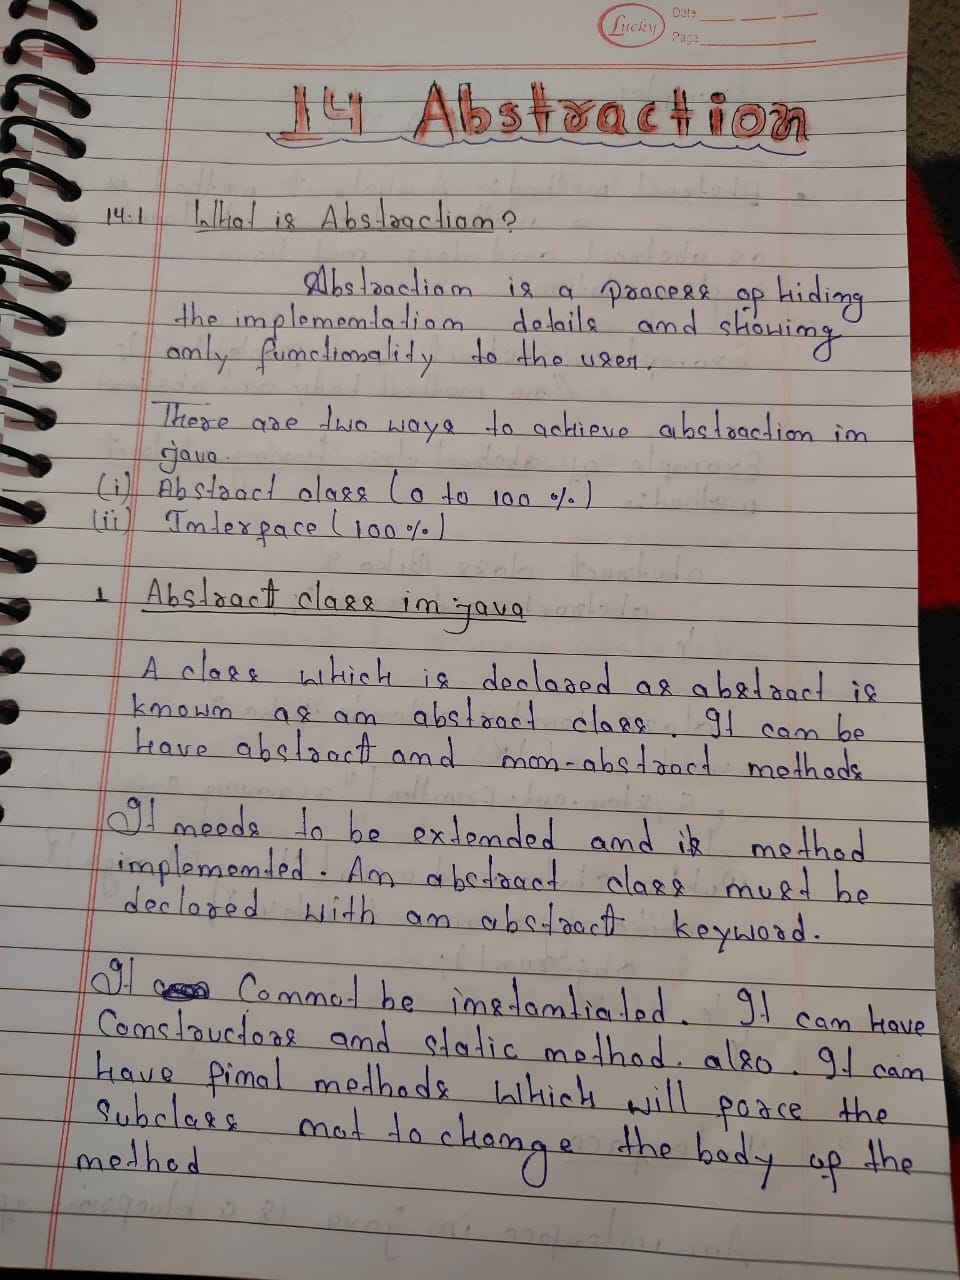 Lucky
Date
Page
14 Abstraction
14.1 What is Abstraction?
Abstraction is a process of hiding
the implementation details and showing
only functionality to the user.
There are two ways to achieve abstraction in
java.
(i) Abstract class (0 to 100 %)
(ii) Interface (100 %)
1 Abstract class in java
A class which is declared as abstract is
known as an abstract class. It can be
have abstract and non-abstract methods
It needs to be extended and its method
implemented. An abstract class must be
declared with an abstract keyword.
It Cannot be instantiated. It can have
Constructors and static method. also. It can
have final methods which will force the
subclass not to change the body of the
method